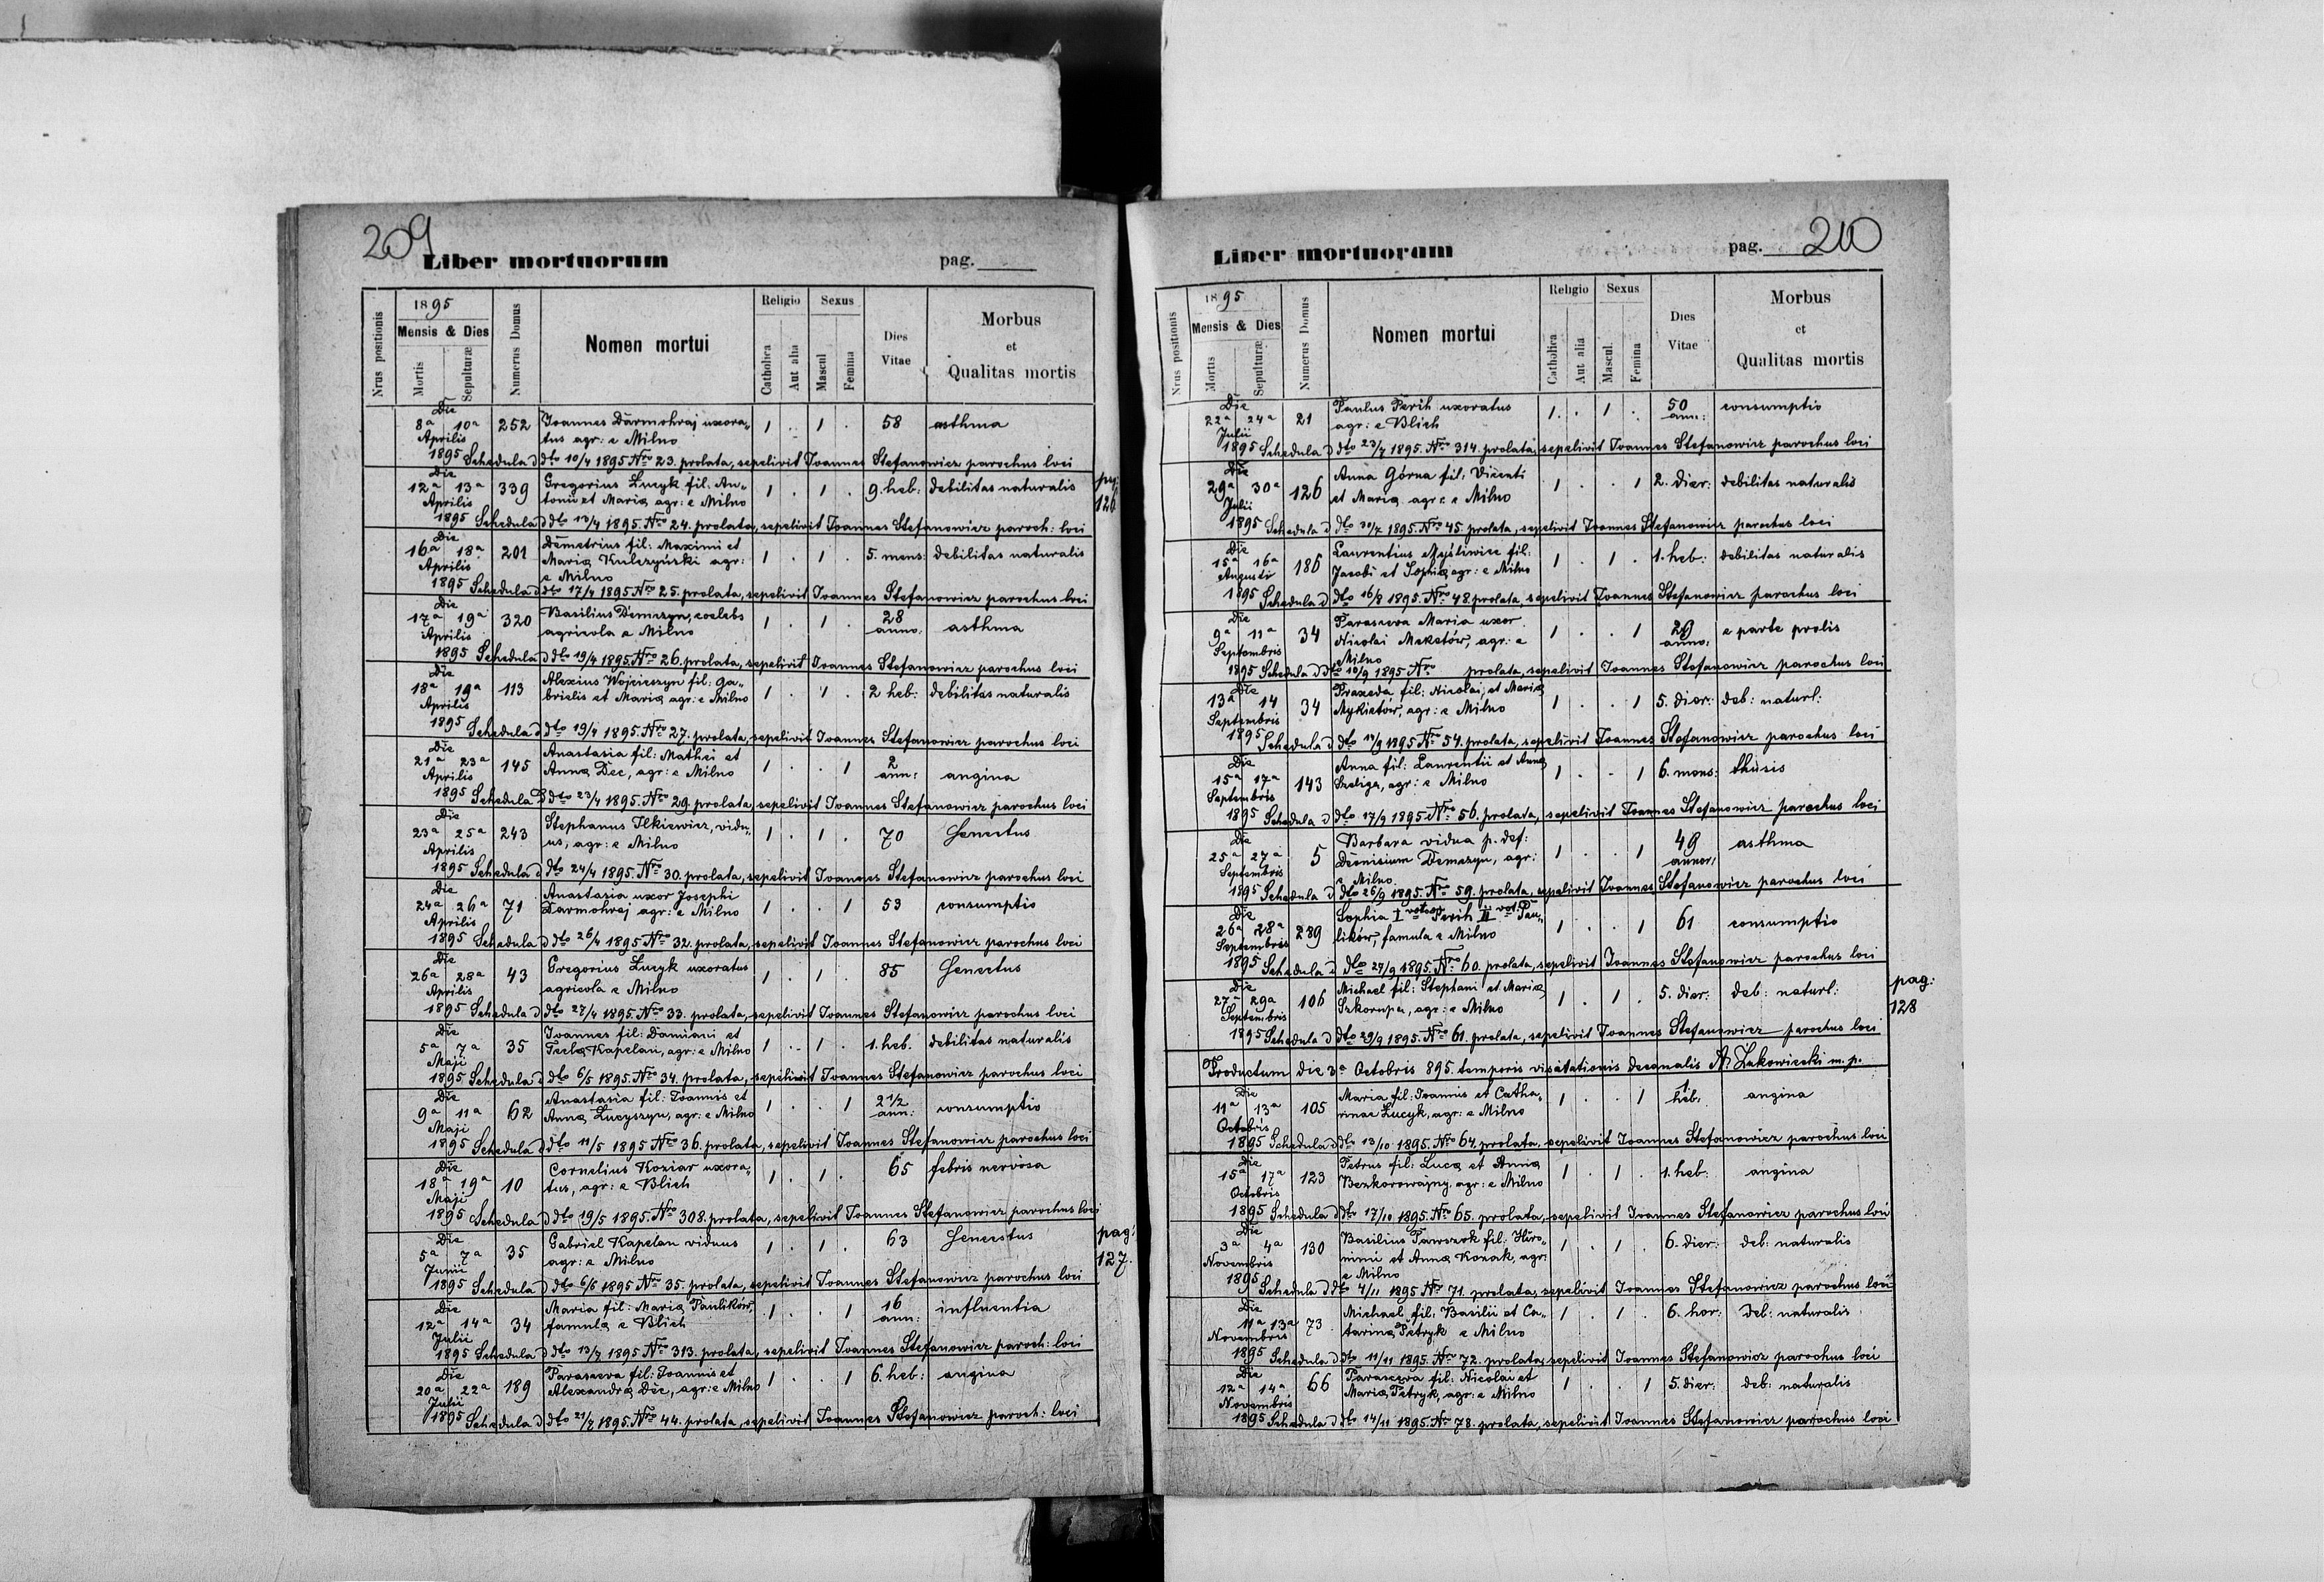 209
Liber mortuorum pag.
Nrus positionis
1895
Mensis & Dies
Mortis
Sepulturæ
Numerus Domus
Nomen mortui
Religio
Catholica
Aut alia
Sexus
Mascul
Femina
Dies
Vitae
Morbus
et
Qualitas mortis
Die
8a 10a 252 Joannes Darmohraj uxora- 1 . 1 . 58 asthma
Aprilis tus agr: e Milno
1895 Schedula d dto 10/4 1895 Nro 23. prolata, sepelivit Joannes Stefanowicz parochus loci
Die
12a 13a 339 Gregorius Łucyk fil: An- 1 . 1 . 9. heb: debilitas naturalis pag:
Aprilis tonii et Mariæ agr: e Milno 126
1895 Schedula d dto 13/4 1895. Nro 24. prolata, sepelivit Joannes Stefanowicz paroch: loci
Die
16a 18a 201 Demetrius fil: Maximi et 1 . 1 . 5. mens: debilitas naturalis
Aprilis Mariæ Kulczyński agr:
e Milno
1895 Schedula d dto 17/4 1895 Nro 25. prolata, sepelivit Joannes Stefanowicz parochus loci
Die
17a 19a 320 Basilius Demszyn, coelebs 1 . 1 . 28 anno. asthma
Aprilis agricola e Milno
1895 Schedula d dto 19/4 1895. Nro 26. prolata, sepelivit Joannes Stefanowicz parochus loci
Die
18a 19a 113 Alexius Wojcieszyn fil: Ga- 1 . 1 . 2 heb: debilitas naturalis
Aprilis brielis et Mariæ agr: e Milno
1895 Schedula d dto 19/4 1895. Nro 27. prolata, sepelivit Joannes Stefanowicz parochus loci
Die
21a 23a 145 Anastasia fil: Mathei et 1 . . 1 2 ann: angina
Aprilis Annæ Dec, agr: e Milno
1895 Schedula d dto 23/4 1895. Nro 29. prolata, sepelivit Joannes Stefanowicz parochus loci
Die
23a 25a 243 Stephanus Ilkiewicz, vidu- 1 . 1 . 70 Senectus
Aprilis us, agr: e Milno
1895 Schedula d dto 24/4 1895. Nro 30. prolata, sepelivit Joannes Stefanowicz parochus loci
Die
24a 26a 71 Anastasia uxor Josephi 1 . . 1 53 consumptio
Aprilis Darmohraj agr: e Milno
1895 Schedula d dto 26/4 1895 Nro 32. prolata, sepelivit Joannes Stefanowicz parochus loci
Die
26a 28a 43 Gregorius Łucyk uxoratus 1 . 1 . 85 Senectus
Aprilis agricola e Milno
1895 Schedula d dto 27/4 1895 Nro 33. prolata, sepelivit Joannes Stefanowicz parochus loci
Die
5a 7a 35 Joannes fil: Damiani et 1 . 1 . 1. heb. debilitas naturalis
Maji Teclæ Kapelan, agr: e Milno
1895 Schedula d dto 6/5 1895. Nro 34. prolata, sepelivit Joannes Stefanowicz parochus loci
Die
9a 11a 62 Anastasia fil: Joannis et 1 . . 1 2 1/2 ann: consumptio
Maji Annæ Łucyszyn, agr: e Milno
1895 Schedula d dto 11/5 1895 Nro 36. prolata, sepelivit Joannes Stefanowicz parochus loci
Die
18a 19a 10 Cornelius Koziar uxora- 1 . 1 . 65 febris nervosa
Maji tus, agr: e Blich
1895 Schedula d dto 19/5 1895. Nro 308. prolata, sepelivit Joannes Stefanowicz parochus loci
Die
5a 7a 35 Gabriel Kapelan viduus 1 . 1 . 63 Senectus pag:
Junii agr: e Milno 127.
1895 Schedula d dto 6/6 1895 Nro 35. prolata, sepelivit Joannes Stefanowicz parochus loci
Die
12a 14a 34 Maria fil: Mariæ Paulików, 1 . . 1 16 ann: influentia
Julii famulæ e Blich
1895 Schedula d dto 13/7 1895 Nro 313. prolata, sepelivit Joannes Stefanowicz paroch: loci
Die
20a 22a 189 Parascewa fil: Joannis et 1 . . 1 6. heb: angina
Julii Alexandræ Dec, agr: e Milno
1895 Schedula d dto 21/7 1895. Nro 44. prolata, sepelivit Joannes Stefanowicz paroch: loci
Liber mortuorum pag. 210
Nrus positionis
1895
Mensis & Dies
Mortis
Sepulturæ
Numerus Domus
Nomen mortui
Religio
Catholica
Aut alia
Sexus
Mascul.
Femina
Dies
Vitae
Morbus
et
Qualitas mortis
Die
22a 24a 21 Paulus Perih uxoratus 1. . 1 . 50 ann: consumptio
Julii agr: e Blich
1895 Schedula d dto 23/7 1895. Nro 314. prolata, sepelivit Joannes Stefanowicz parochus loci
Die
29a 30a 126 Anna Górna fil: Vicenti 1 . . 1 2. dier: debilitas naturalis
Julii et Mariæ agr: e Milno
1895 Schedula d dto 30/7 1895. Nro 45. prolata, sepelivit Joannes Stefanowicz parochus loci
Die
15a 16a 186 Laurentius Myśliwiec fil: 1 . 1 . 1. heb: debilitas naturalis
Augusti Jacobi et Sophiæ agr: e Milno
1895 Schedula d dto 16/8 1895. Nro 48. prolata, sepelivit Joannes Stefanowicz parochus loci
Die
9a 11a 34 Parascewa Maria uxor 1 . . 1 29 anno: e parte prolis
Septembris Nicolai Mekietów, agr: e
Milno
1895 Schedula d dto 10/9 1895 Nro prolata, sepelivit Joannes Stefanowicz parochus loci
Die
13a 14 34 Praxeda fil: Nicolai, et Mariæ 1 . . 1 5. dier: deb: naturl:
Septembris Mykietów, agr: e Milno
1895 Schedula d dto 14/9 1895 Nro 54. prolata, sepelivit Joannes Stefanowicz parochus loci
Die
15a 17a 143 Anna fil: Laurentii et Annæ 1 . . 1 6. mens: thisis
Septembris Szeliga, agr: e Milno
1895 Schedula d dto 17/9 1895 Nro 56. prolata, sepelivit Joannes Stefanowicz parochus loci
Die
25a 27a 5 Barbara vidua p. def: 1 . . 1 49 annor: asthma
Septembris Dionisium Demszyn, agr:
e Milno
1895 Schedula d dto 26/9 1895. Nro 59. prolata, sepelivit Joannes Stefanowicz parochus loci
Die
26a 28a 289 Sophia I voto Perih II vot. Pau- 1 . . 1 61 consumptio
Septembris lików, famula e Milno
1895 Schedula d dto 27/9 1895. Nro 60. prolata, sepelivit Joannes Stefanowicz parochus loci
Die
27a 29a 106 Michael fil: Stephani et Mariæ 1 . 1 . 5. dier: deb: naturl: pag:
Septembris Szkorupa, agr: e Milno 128
1895 Schedula d dto 29/9 1895. Nro 61. prolata, sepelivit Joannes Stefanowicz parochus loci
Productum die 3a Octobris 895. temporis visitationis decanalis A. Łukowiecki m. p.
Die
11a 13a 105 Maria fil: Joannis et Catha- 1 . . 1 1. heb. angina
Octobris rinae Łucyk, agr: e Milno
1895 Schedula d dto 13/10 1895. Nro 64. prolata, sepelivit Joannes Stefanowicz parochus loci
Die
15a 17a 123 Petrus fil: Lucæ et Annæ 1 . 1 . 1. heb: angina
Octobris Bezkorowajny, agr: e Milno
1895 Schedula d dto 17/10 1895. Nro 65. prolata, sepelivit Joannes Stefanowicz parochus loci
Die
3a 4a 130 Basilius Pawszok fil: Hiro- 1 . 1 . 6. dier: deb: naturalis
Novembris nimi et Annæ Kozak, agr:
e Milno
1895 Schedula d dto 4/11 1895 Nro 71. prolata, sepelivit Joannes Stefanowicz parochus loci
Die
11a 13a 73 Michael fil: Basilii et Ca- 1 . 1 . 6. hor: deb: naturalis
Novembris tarinæ Petryk e Milno
1895 Schedula d dto 11/11 1895. Nro 72. prolata, sepelivit Joannes Stefanowicz parochus loci
Die
12a 14a 66 Parascewa fil: Nicolai et 1 . . 1 5. dier: deb: naturalis
Novembris Mariæ Petryk, agr: e Milno
1895 Schedula d dto 14/11 1895. Nro 78. prolata, sepelivit Joannes Stefanowicz parochus loci